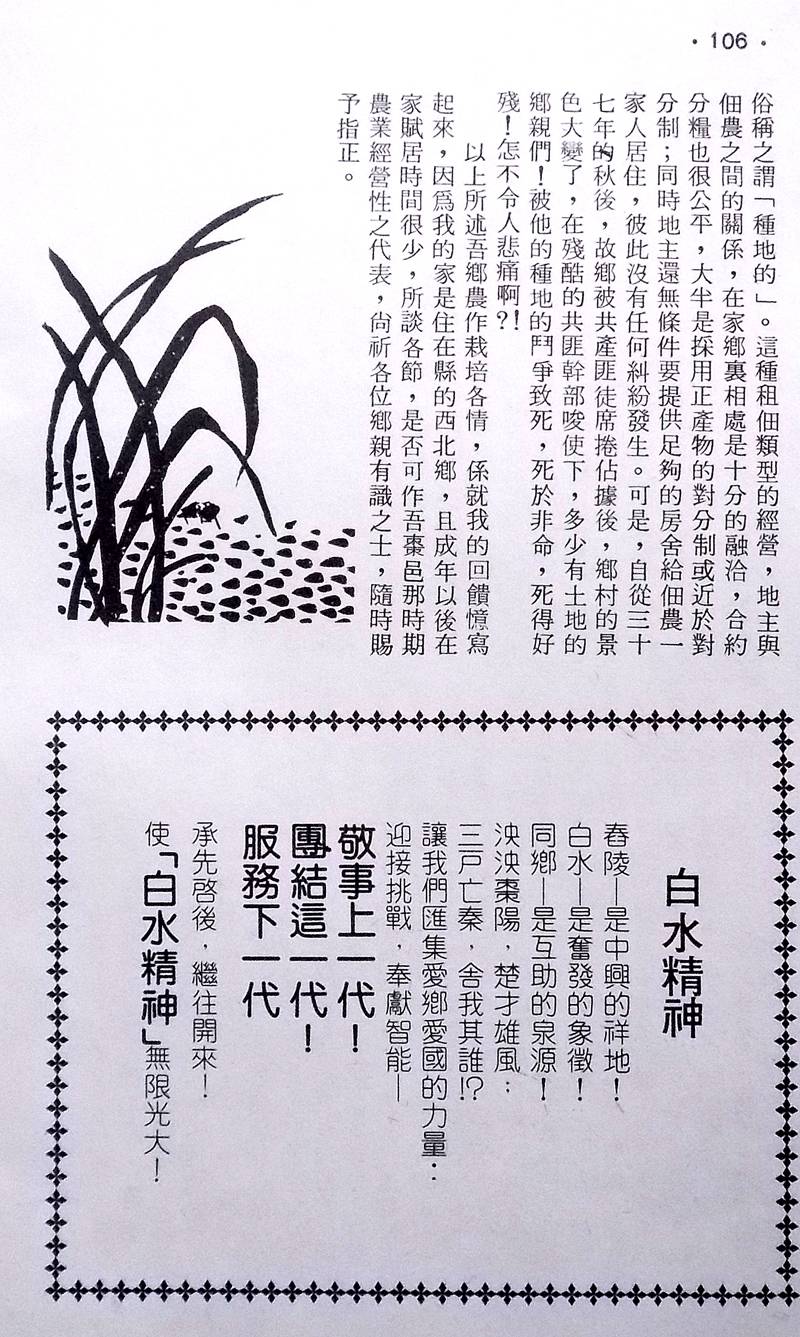 •106•
俗稱之謂「種地的」。這種租佃類型的經營，地主與
佃農之間的關係，在家鄉裏相處是十分的融洽，合約
分糧也很公平，大半是採用正產物的對分制或近於對
分制；同時地主還無條件要提供足夠的房舍給佃農一
家人居住，彼此沒有任何糾紛發生。可是，自從三十
七年的秋後，故鄉被共產匪徒席捲佔據後，鄉村的景
色大變了，在殘酷的共匪幹部唆使下，多少有土地的
鄉親們！被他的種地的鬥爭致死，死於非命，死得好
殘！怎不令人悲痛啊?!
以上所述吾鄉農作栽培各情，係就我的回饋憶寫
起來，因爲我的家是住在縣的西北鄉，且成年以後在
家賦居時間很少，所談各節，是否可作吾棗邑那時期
農業經營性之代表，尚祈各位鄉親有識之士，隨時賜
予指正。
白水精神
舂陵—是中興的祥地！
白水—是奮發的象徵！
同鄉—是互助的泉源！
泱泱棗陽，楚才雄風；
三戶亡秦，舍我其誰!?
讓我們匯集愛鄉愛國的力量：
迎接挑戰，奉獻智能—
敬事上一代！
團結這一代！
服務下一代
承先啓後，繼往開來！
使「白水精神」無限光大！